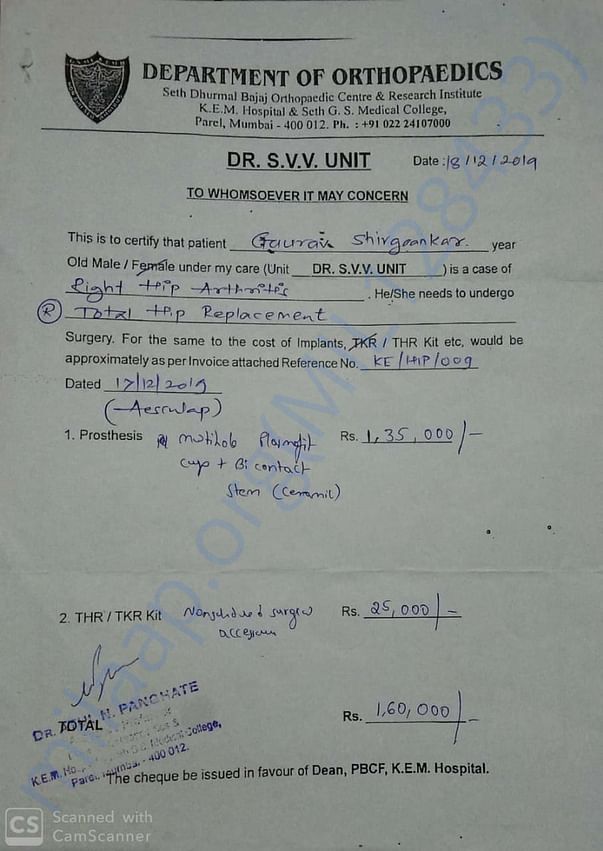 DEPARTMENT OF ORTHOPAEDICS
Seth Dhurmal Bajaj Orthopaedic Centre & Research Institute
K.E.M. Hospital & Seth G. S. Medical College,
Parel, Mumbai - 400 012. Ph. : +91 022 24107000
DR. S.V.V. UNIT Date : 18/12/2019
TO WHOMSOEVER IT MAY CONCERN
This is to certify that patient Gaurav Shirgaonkar. year
Old Male / Female under my care (Unit DR. S.V.V. UNIT ) is a case of
Right Hip Arthritis . He/She needs to undergo
(R) Total Hip Replacement
Surgery. For the same to the cost of Implants, TKR / THR Kit etc, would be
approximately as per Invoice attached Reference No. KE/HIP/009
Dated 17/12/2019
(Aesculap)
1. Prosthesis Multihole Plasmafit Rs. 1,35,000/-
cup + Bicontact
Stem (Ceramic)
2. THR / TKR Kit surgical Rs. 25,000/-
TOTAL Rs. 1,60,000/-
DR. N. PANGHATE
Medical College,
K.E.M. Parel, Mumbai - 400 012.
The cheque be issued in favour of Dean, PBCF, K.E.M. Hospital.
milaap.org(MIL_128433)
CS Scanned with
CamScanner